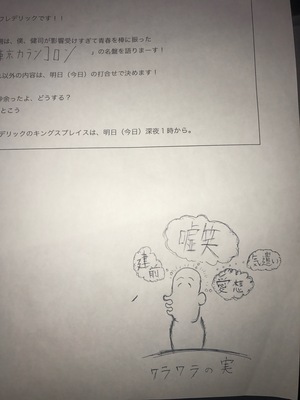 フレデリックです！！
は、僕、健司が影響受けすぎて青春を棒に振った
幕末カラン?コロン の名盤を語りまーす！
以外の内容は、明日（今日）の打合せで決めます！
余ったよ、どうする？
とこう
デリックのキングスプレイスは、明日（今日）深夜１時から。
嘘笑
建前
気遣い
愛想
ワラワラの実